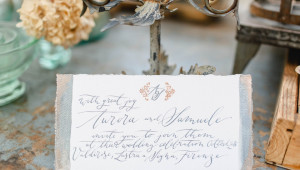 with great joy
Aurora and Samuele
invite you to join them
at their wedding celebration
Valdirose, Lastra a Signa, Firenze